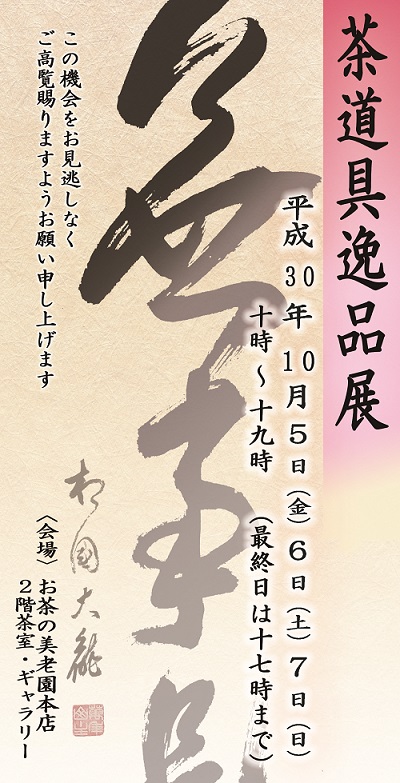 茶道具逸品展
平成30年10月5日(金)6日(土)7日(日)
十時～十九時 (最終日は十七時まで)
無事是
相国大龍
この機会をお見逃しなく
ご高覧賜りますようお願い申し上げます
〈会場〉お茶の美老園本店
2階茶室・ギャラリー